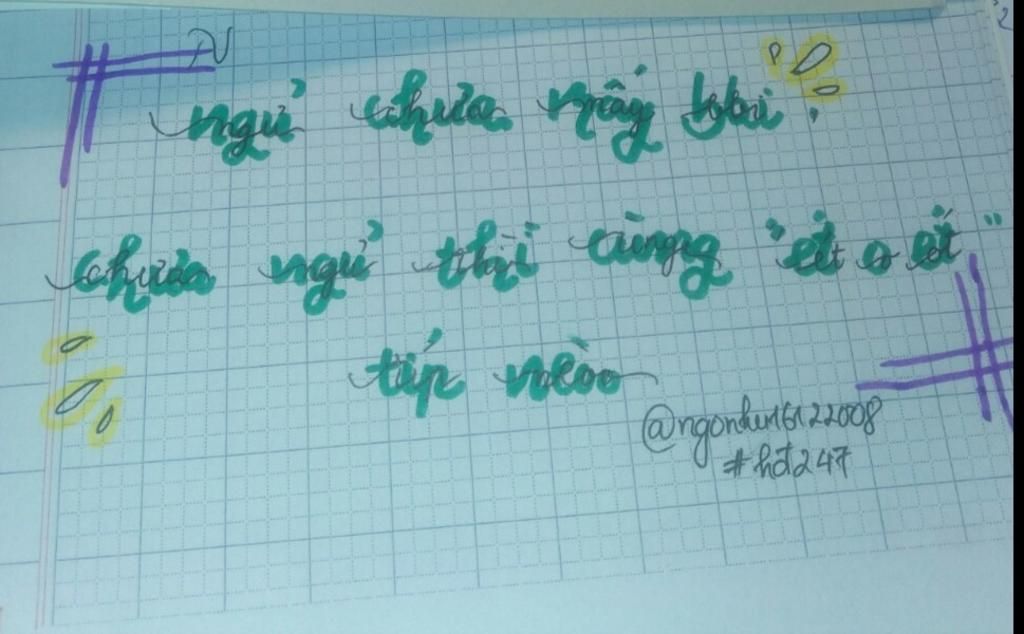 ngủ chưa mấy bbi?
chưa ngủ thì cùng "ét o ét"
típ nèoo
@ngonhu16122008
#hđ247